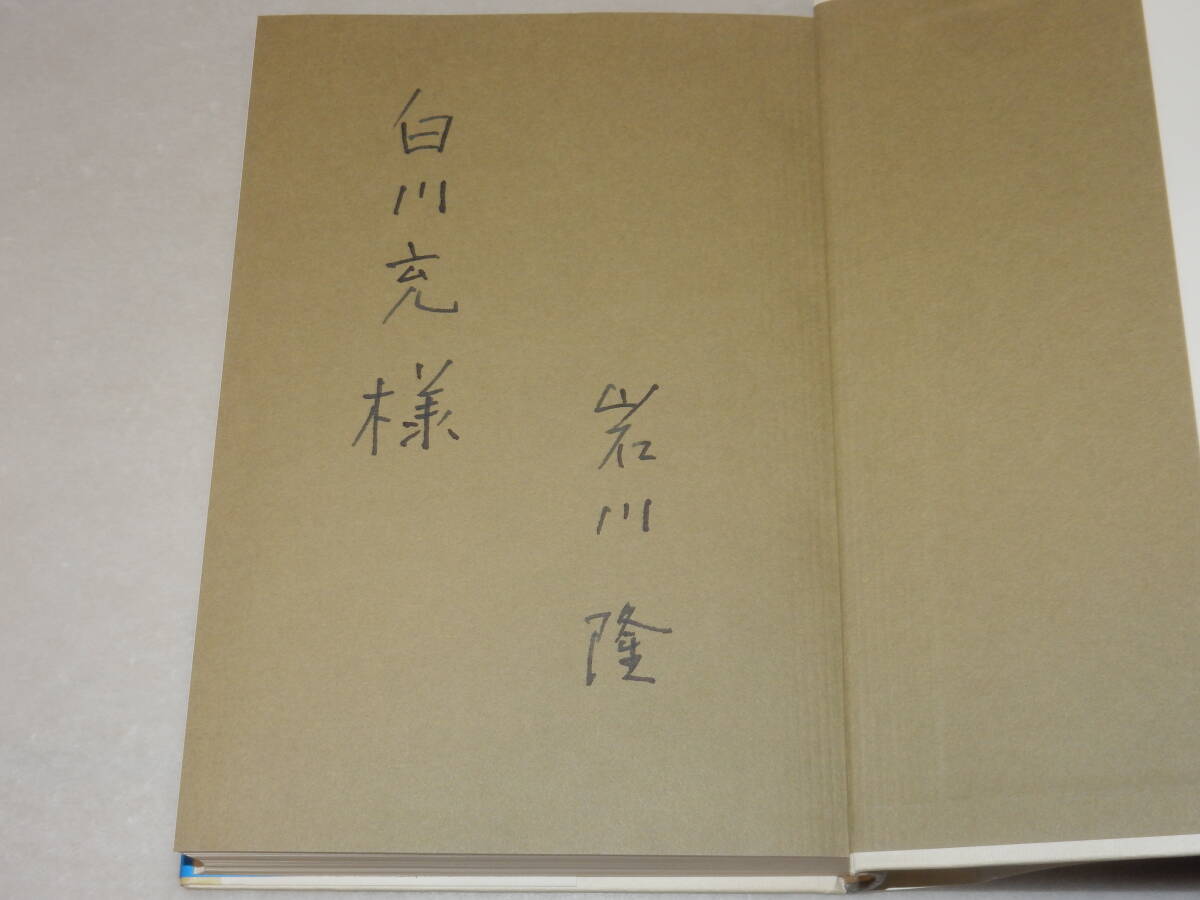 白川充様
岩川隆